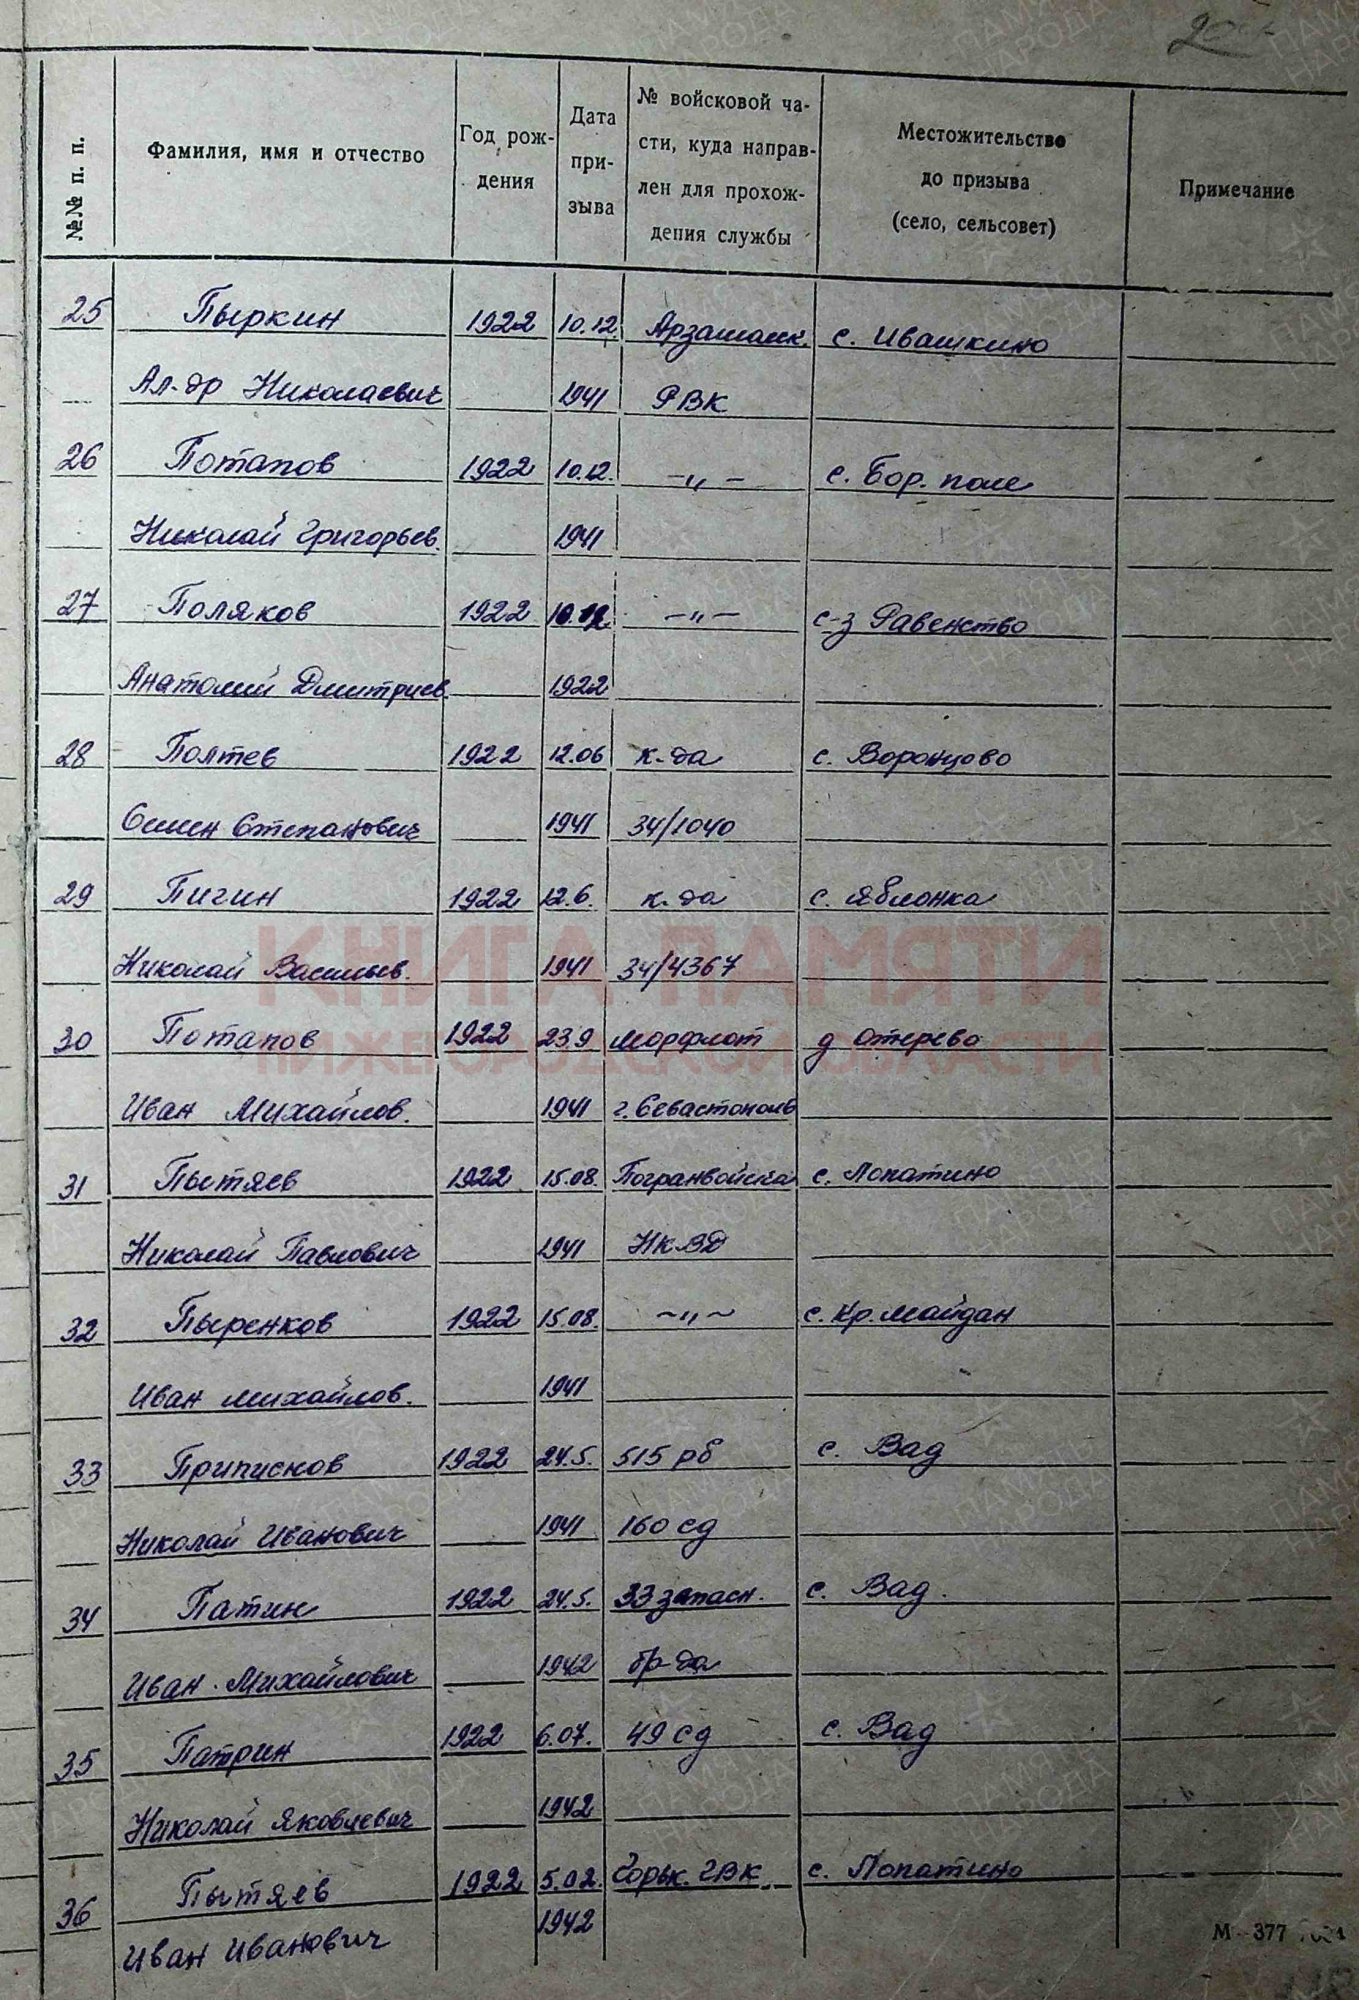 №№ п. п. Фамилия, имя и отчество Год рождения Дата призыва № войсковой части, куда направлен для прохождения службы Местожительство до призыва (село, сельсовет) Примечание
25 Пыркин 1922 10.12. Арзамаск. с. Ивашкино
Ал-др Николаевич 1941 РВК
26 Потапов 1922 10.12. -"- с. Бор. поле
Николай Григорьев. 1941
27 Поляков 1922 10.12 -"- с-з Равенство
Анатолий Дмитриев. 1922
28 Полтев 1922 12.06 к-да с. Воронцово
Семен Степанович 1941 34/1040
29 Пигин 1922 12.6. к-да с. Яблонка
Николай Васильев. 1941 34/4367
КНИГА ПАМЯТИ
30 Потапов 1922 23.9 Морфлот д Отерево
НИЖЕГОРОДСКОЙ ОБЛАСТИ
Иван Михайлов. 1941 г. Севастополь
31 Пытяев 1922 15.08. Погранвойска с. Лопатино
Николай Павлович 1941 НКВД
32 Пыренков 1922 15.08. ~"~ с. Кр. Майдан
Иван Михайлов. 1941
33 Приписнов 1922 24.5. 515 рб с. Вад
Николай Иванович 1941 160 сд
34 Патин 1922 24.5. 33 запасн. с. Вад.
Иван Михайлович 1942 бр-да
35 Патрин 1922 6.07. 49 сд с. Вад
Николай Яковлевич 1942
36 Пытяев 1922 5.02. Горьк. ГВК с. Лопатино
Иван Иванович 1942
М-377
ПАМЯТЬ НАРОДА